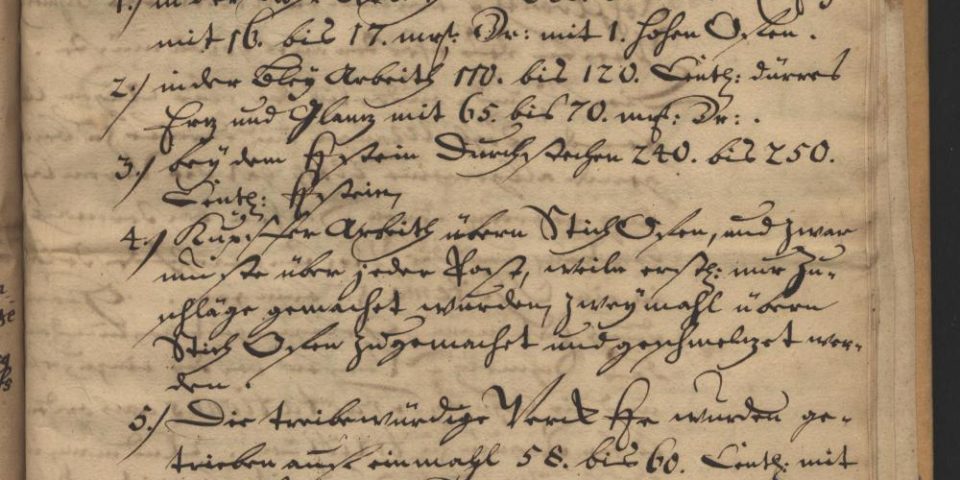 1.) in der
mit 16. bis 17. mas: Dr: mit 1. hohen Ofen.
2.) in der Bley Arbeith 110. bis 120. Centh: dürres
Ertz und Glantz mit 65. bis 70. mas: Dr: .
3.) bey dem durchstechen 240. bis 250.
Centh:
4.) Kupffer Arbeith übern Stich Ofen, und zwar
muste über jeder Post, weiln erstl: nur Zu-
schläge gemachet wurden, zweymahl übern
Stich Ofen zugemachet und geschmeltzet wer-
den.
5.) Die treibewürdige Werck wurden ge-
trieben auff einmahl 58. bis 60. Centh: mit